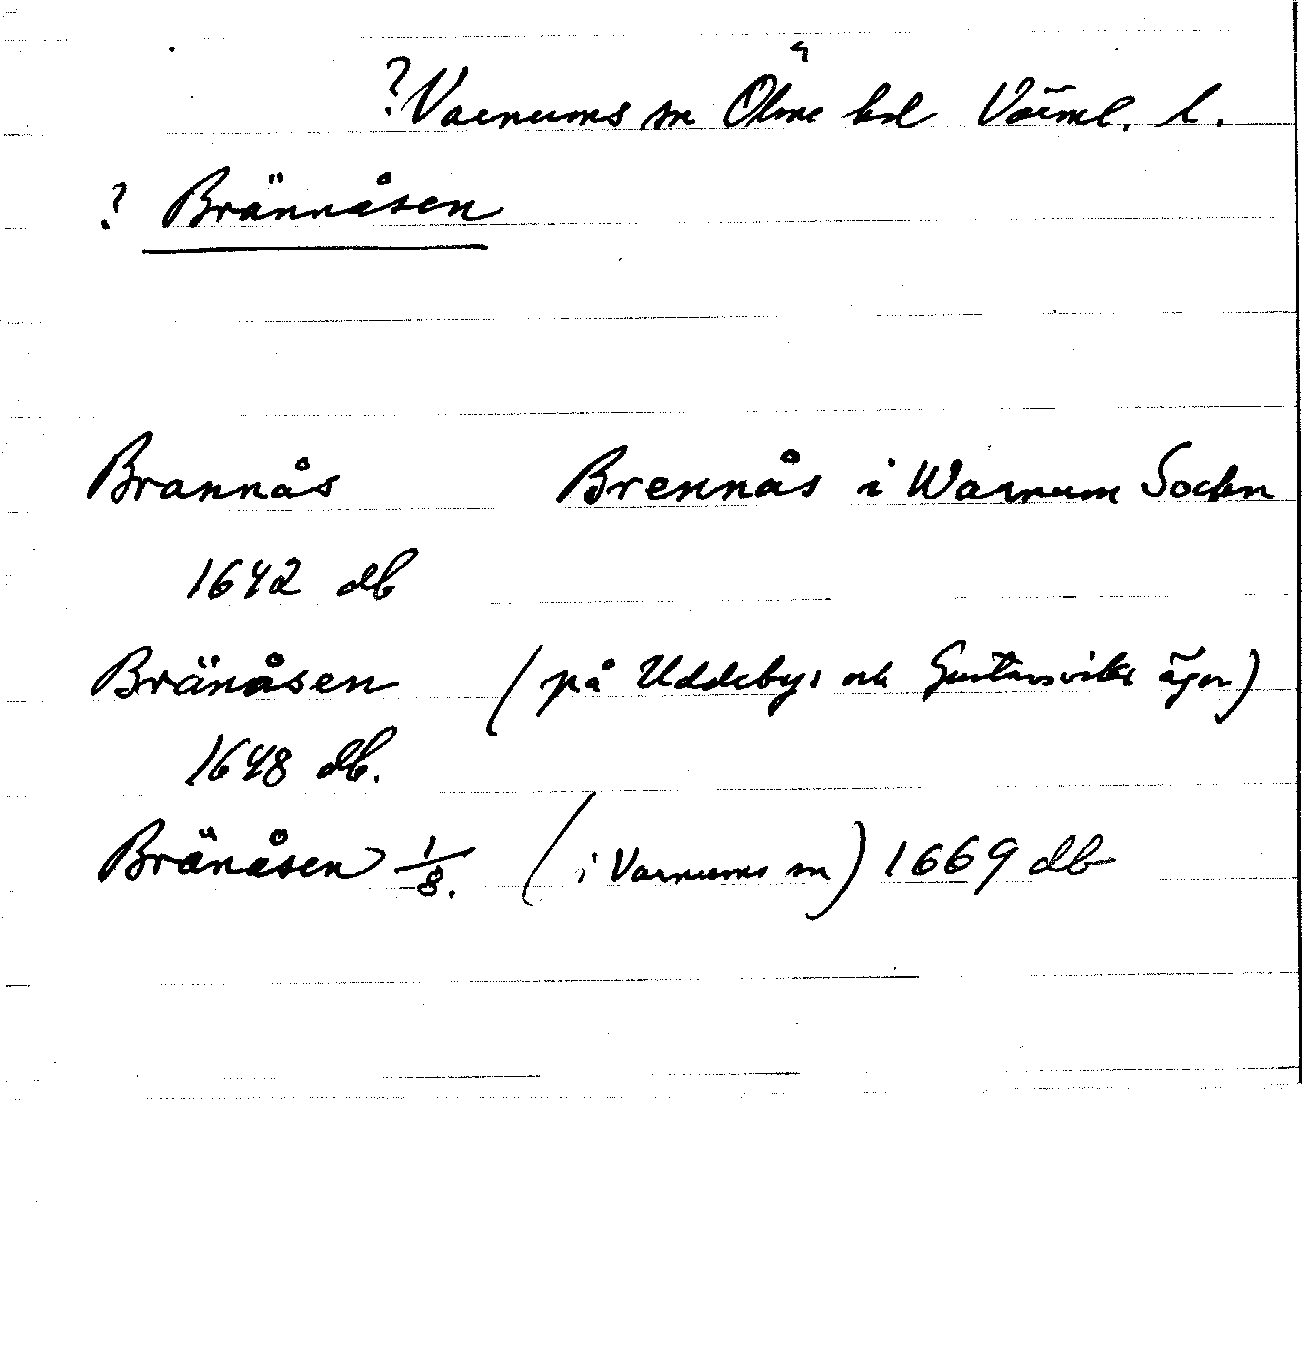 ?Varnums sn Ölme hd Värml. l.
? Brännåsen
Brannås Brennås i Warnum Sockn
1642 db
Bränåsen (på Uddebys och Gustavsviks ägor)
1648 db.
Bränåsen 1/8. (i Varnums sn) 1669 db